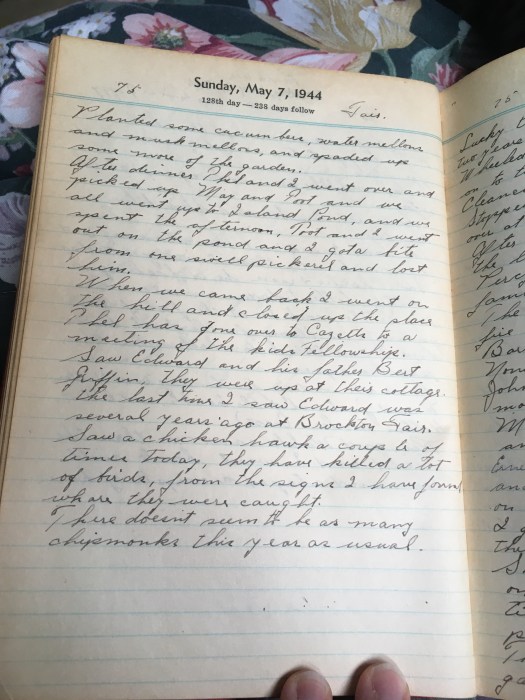 75
Sunday, May 7, 1944
128th day — 238 days follow
Fair.
Planted some cacumbers, water mellons
and musk mellons, and spaded up
some more of the garden.
After dinner Phel and I went over and
picked up May and Poot and we
all went up to Island Pond, and we
spent the afternoon, Poot and I went
out on the pond and I got a bite
from one swell pickerel and lost
him.
When we came back I went on
the hill and closed up the place
Phel has gone over to to a
meeting of the kids Fellowship.
Saw Edward and his father Bert
Griffin, they were up at their cottage.
the last time I saw Edward was
several years ago at Brockton Fair.
Saw a chicken hawk a couple of
times today, they have killed a lot
of birds, from the signs I have found
whare they were caught.
There doesnt seem to be as many
chipmonks this year as usual.
15
Lucky
two years
Wheeled
on to t
Cleane
Stoppe
over at
After
the l
Perc
Sam
The
fire
Bar
You
John
mo
M
as
and
on
I g
the
S
on
ti